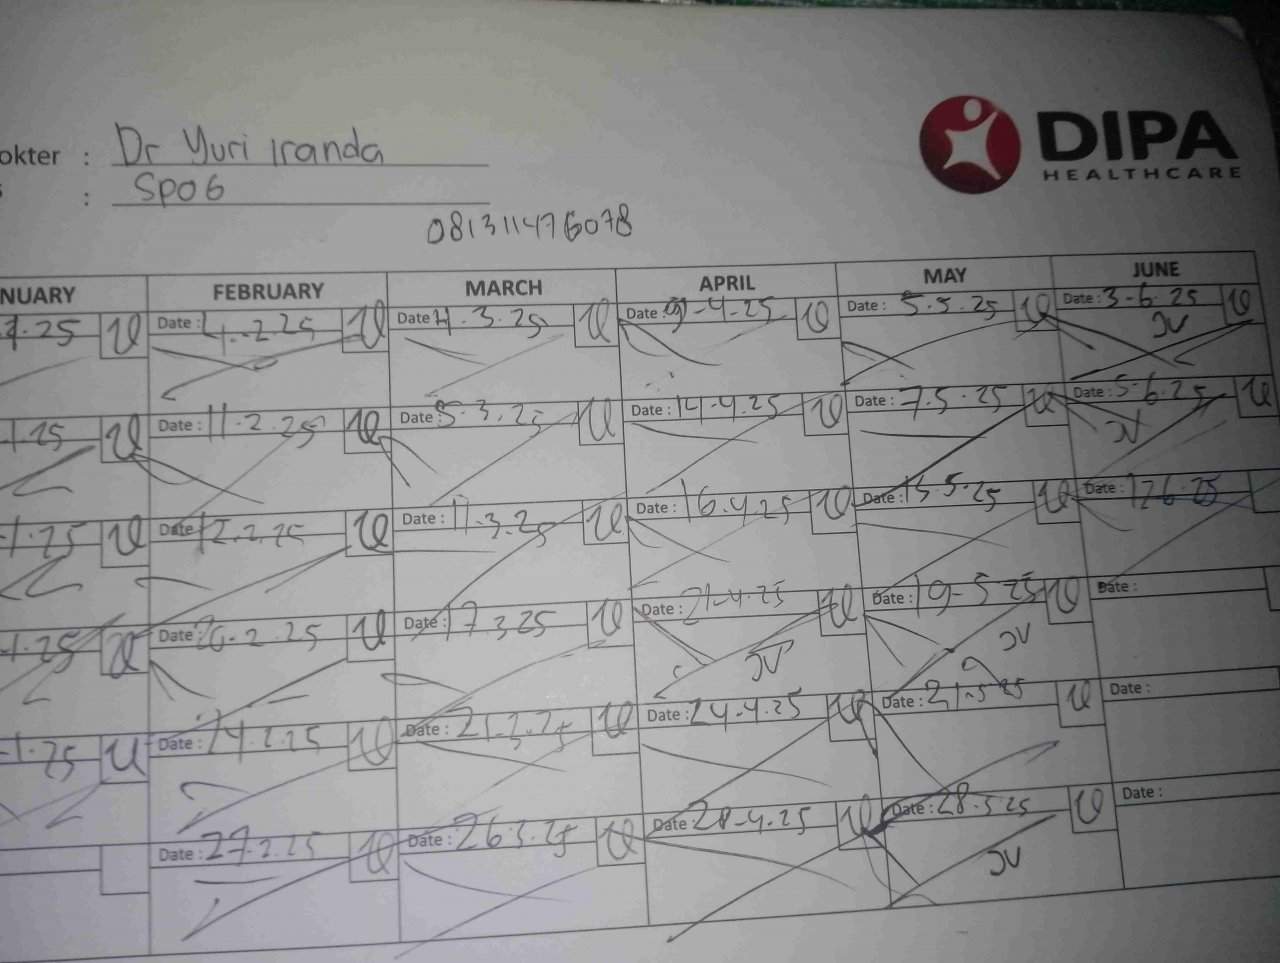 DIPA
HEALTHCARE
okter : Dr Yuri Iranda
: SpOG
081311476078
NUARY FEBRUARY MARCH APRIL MAY JUNE
.25 Date: 4.-2.25 Date: 4.3.25 Date: 9-4-25 Date: 5.5.25 Date: 3-6.25
JV
-1.25 Date: 11-2.25 Date: 5.3.25 Date: 14-4.25 Date: 7.5.25 Date: 5-6.25
JV
-1.25 Date: 12.2.25 Date: 11.3.25 Date: 16.4.25 Date: 15.5.25 Date: 12 6.25
-1.25 Date: 20-2.25 Date: 17 3.25 Date: 21-4.25 Date: 19-5 25 Date:
JV JV
-1.25 Date: 24.2.25 Date: 21-3.25 Date: 24-4.25 Date: 21-5 25 Date:
Date: 27.2.25 Date: 26 3.25 Date: 28-4.25 Date: 28.5.25 Date:
JV